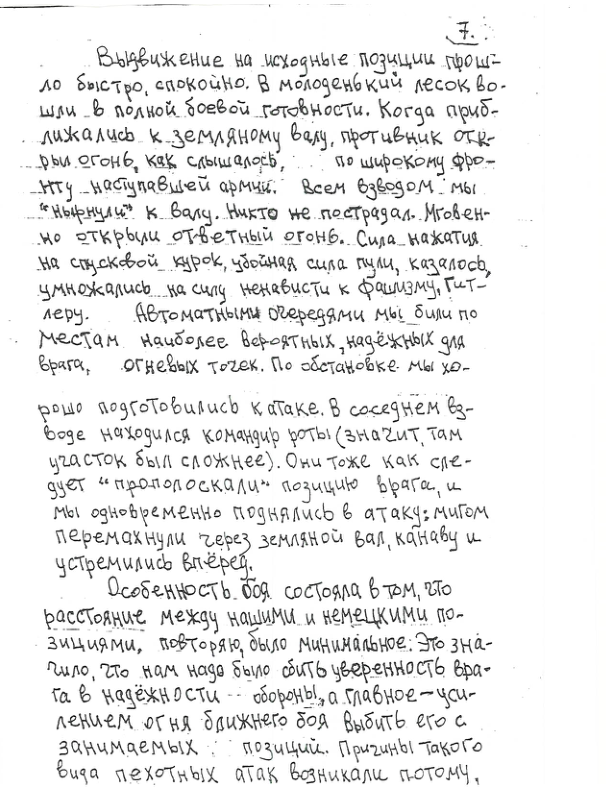 7.
Выдвижение на исходные позиции прош-
ло быстро, спокойно. В молоденький лесок во-
шли в полной боевой готовности. Когда приб-
лижались к земляному валу, противник отк-
рыл огонь, как слышалось, по широкому фро-
нту наступавшей армии. Всем взводом мы
"нырнули" к валу. Никто не пострадал. Мговен-
но открыли ответный огонь. Сила нажатия
на спусковой курок, убойная сила пули, казалось,
умножались на силу ненависти к фашизму, Гит-
леру. Автоматными очередями мы били по
местам наиболее вероятных, надёжных для
врага, огневых точек. По обстановке мы хо-
рошо подготовились к атаке. В соседнем вз-
воде находился командир роты (значит, там
участок был сложнее). Они тоже как сле-
дует "прополоскали" позицию врага, и
мы одновременно поднялись в атаку: мигом
перемахнули через земляной вал, канаву и
устремились вперёд.
Особенность боя состояла в том, что
расстояние между нашими и немецкими по-
зициями, повторяю, было минимальное. Это зна-
чило, что нам надо было сбить уверенность вра-
га в надёжности обороны, а главное - уси-
лением огня ближнего боя выбить его с
занимаемых позиций. Причины такого
вида пехотных атак возникали потому,